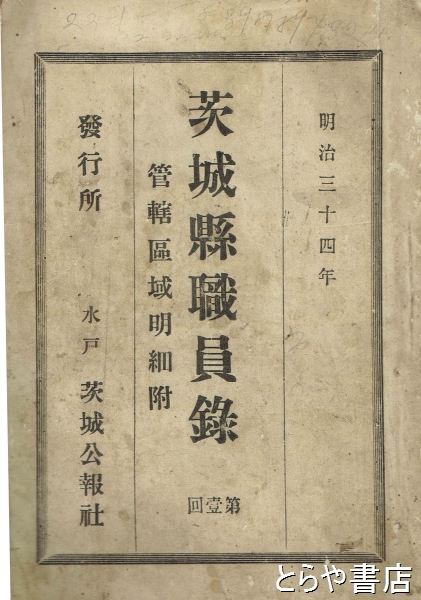 明治三十四年
茨城縣職員錄
第壹回
管轄區域明細附
發行所
水戸 茨城公報社
とらや書店